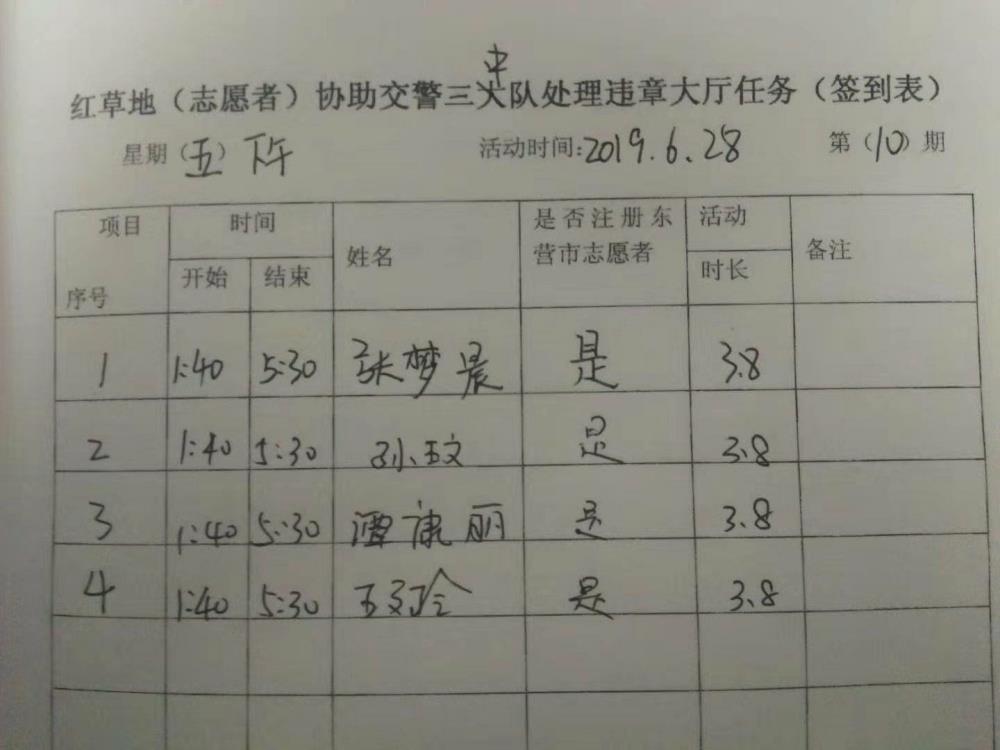 中
红草地（志愿者）协助交警三大队处理违章大厅任务（签到表）
星期（五）下午 活动时间:2019.6.28 第（10）期
项目 时间 姓名 是否注册东营市志愿者 活动时长 备注
序号 开始 结束
1 1:40 5:30 张梦晨 是 3.8
2 1:40 5:30 孙文 是 3.8
3 1:40 5:30 潭康丽 是 3.8
4 1:40 5:30 是 3.8